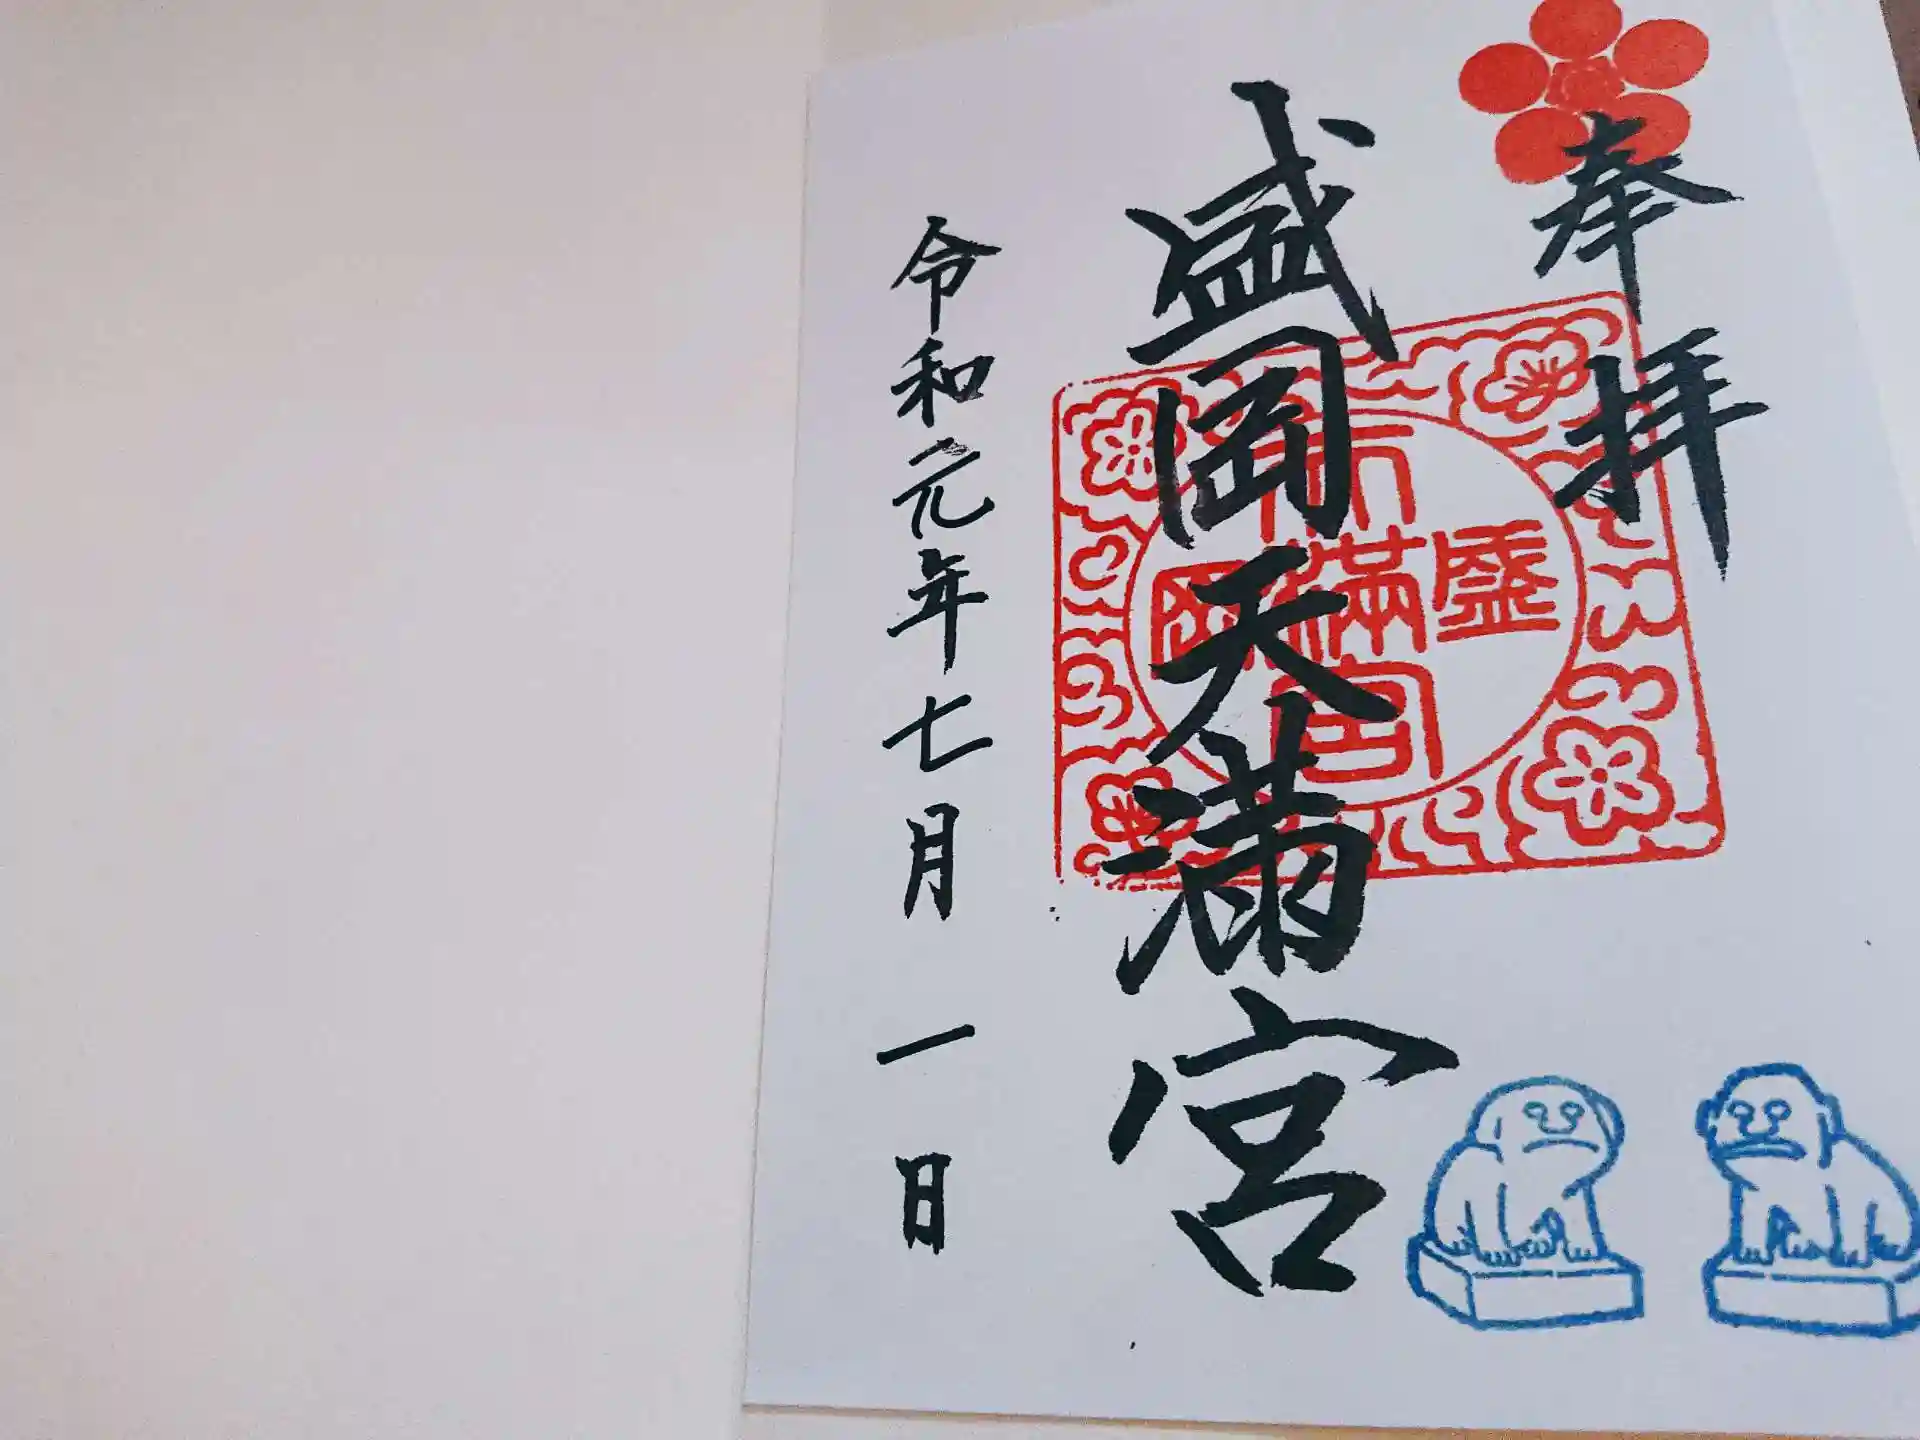 奉拝
盛岡天満宮
盛岡天満宮
令和元年七月一日